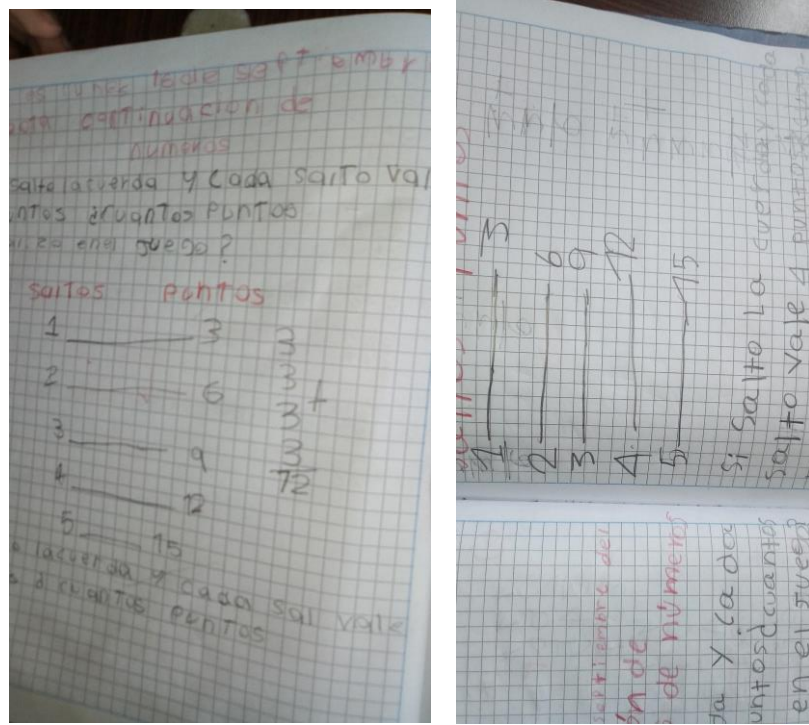 continuacion de
numeros
salto la cuerda y cada salto val
ntos ¿cuantos puntos
en el juego?
saltos puntos
1 3
2 6
3 9
4 12
5 15
3
3
3 +
3
12
lacuerda y cada sal vale
s ¿cuantos puntos
1 3
2 6
3 9
4 12
5 15
Si salto la cuerda y cada
salto vale 4 puntos
eptiembre del
ón de
de números
a y cada
untos ¿cuantos
en el juego